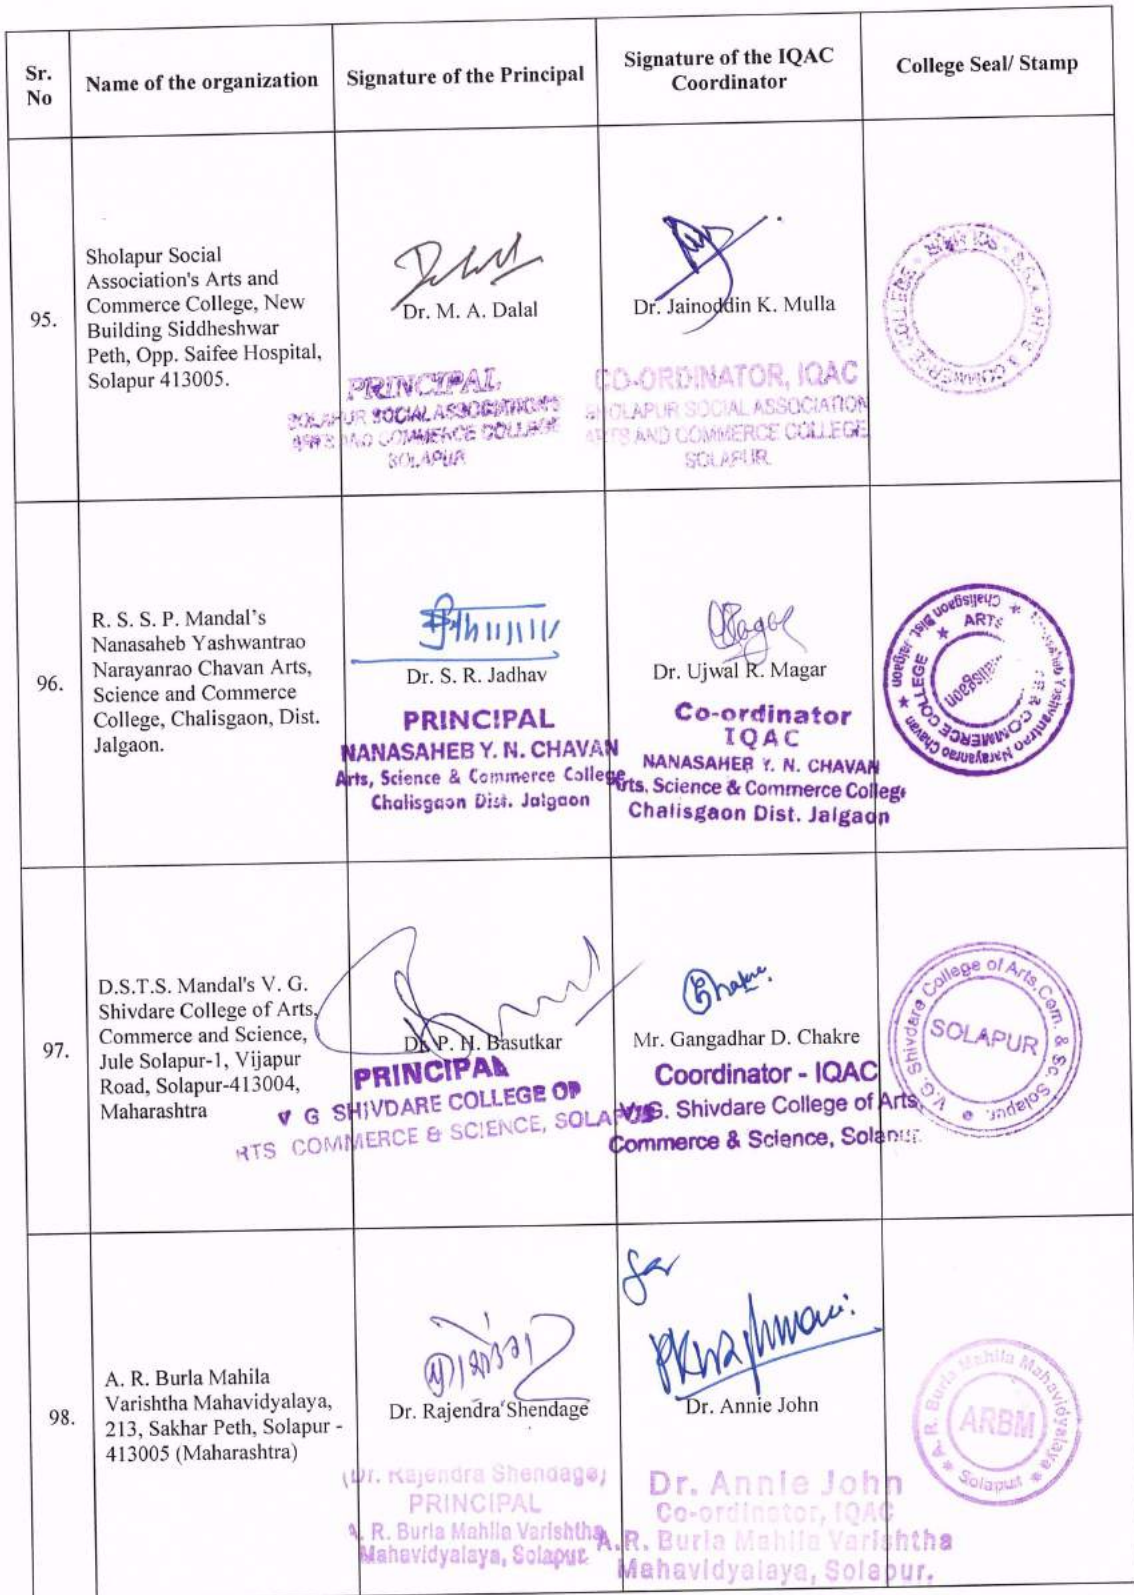 Sr.
No
Name of the organization
Signature of the Principal
Signature of the IQAC
Coordinator
College Seal/ Stamp
95.
Sholapur Social
Association's Arts and
Commerce College, New
Building Siddheshwar
Peth, Opp. Saifee Hospital,
Solapur 413005.
Dr. M. A. Dalal
PRINCIPAL
SOLAPUR SOCIAL ASSOCIATION'S
ARTS AND COMMERCE COLLEGE
SOLAPUR
Dr. Jainoddin K. Mulla
CO-ORDINATOR, IQAC
SHOLAPUR SOCIAL ASSOCIATION
ARTS AND COMMERCE COLLEGE
SOLAPUR
S.S.A. ARTS & COMMERCE COLLEGE
96.
R. S. S. P. Mandal's
Nanasaheb Yashwantrao
Narayanrao Chavan Arts,
Science and Commerce
College, Chalisgaon, Dist.
Jalgaon.
Dr. S. R. Jadhav
PRINCIPAL
NANASAHEB Y. N. CHAVAN
Arts, Science & Commerce College
Chalisgaon Dist. Jalgaon
Dr. Ujwal R. Magar
Co-ordinator
IQAC
NANASAHEB Y. N. CHAVAN
Arts, Science & Commerce College
Chalisgaon Dist. Jalgaon
Yashvantrao Narayanrao Chavan
Chalisgaon Dist. Jalgaon
ARTS
COMMERCE COLLEGE
97.
D.S.T.S. Mandal's V. G.
Shivdare College of Arts,
Commerce and Science,
Jule Solapur-1, Vijapur
Road, Solapur-413004,
Maharashtra
Dr. P. H. Basutkar
PRINCIPAL
V G SHIVDARE COLLEGE OF
ARTS COMMERCE & SCIENCE, SOLAPUR
Chakre
Mr. Gangadhar D. Chakre
Coordinator - IQAC
V.G. Shivdare College of Arts,
Commerce & Science, Solapur.
V.G. Shivdare College of Arts, Com. & Sc. Solapur
SOLAPUR
98.
A. R. Burla Mahila
Varishtha Mahavidyalaya,
213, Sakhar Peth, Solapur -
413005 (Maharashtra)
Dr. Rajendra Shendage
(Dr. Rajendra Shendage)
PRINCIPAL
A. R. Burla Mahila Varishtha
Mahavidyalaya, Solapur
for
Dr. Annie John
Dr. Annie John
Co-ordinator, IQAC
A.R. Burla Mahila Varishtha
Mahavidyalaya, Solapur.
A. R. Burla Mahila Mahavidyalaya
ARBM
Solapur